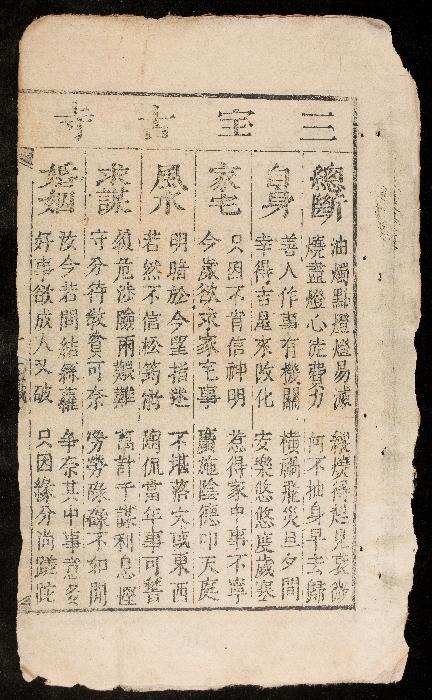 三宝古寺
總斷
油燭點燈燈易滅
燒盡燈心徒費力
何不抽身早去歸
自身
善人作事有機關
橫禍飛災旦夕間
幸得吉星來改化
安樂悠悠度歲寒
家宅
只因不肯信神明
惹得家中事不寧
今歲欲求家宅事
廣施陰德叩天庭
風水
明暗於今望指迷
不堪落穴或東西
若然不信松筠
陶侃當年事可
求謀
傾危涉險兩艱難
萬計千謀利息
守分待敷貧可奈
勞勞碌碌不如閒
婚姻
汝今若問結絲蘿
爭奈其中事意多
好事欲成人又破
只因緣分尚蹉跎